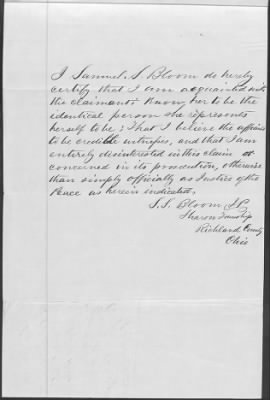 I Samuel. S. Bloom do hereby
certify that I am acquainted with
the claimant: Know her to be the
identical person she represents
herself to be; That I believe the affiants
to be credible witnesses, and that I am
entirely disinterested in this claim or
concerned in its prosecution, otherwise
than simply officially as Justice of the
Peace as herein indicated,
S. S. Bloom J P
Sharon Township
Richland County
Ohio